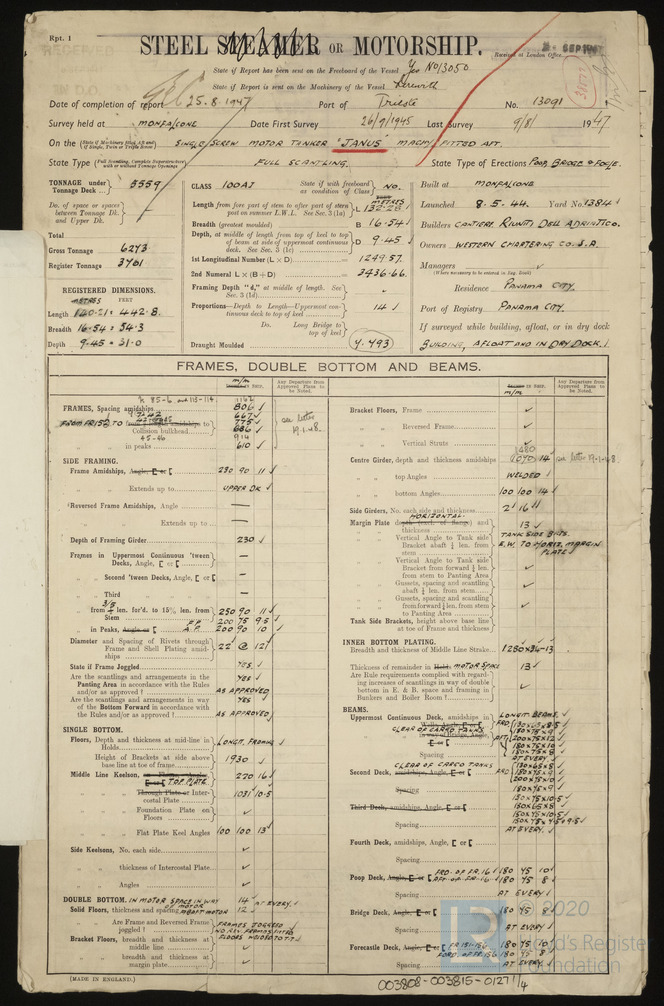 Rpt. 1
STEEL STEAMER OR MOTORSHIP.
RECEIVED
SEP 1947
Received at London Office
State if Report has been sent on the Freeboard of the Vessel Yes No 13050
State if Report is sent on the Machinery of the Vessel Herewith
Date of completion of report 25.8.1947 Port of Trieste No. 13091
Survey held at MONFALCONE Date First Survey 26/9/1945 Last Survey 9/8/ 1947
On the SINGLE SCREW MOTOR TANKER "JANUS" MACHY FITTED AFT.
State Type FULL SCANTLING. State Type of Erections POOP, BRIDGE & FOC'LE.
TONNAGE under Tonnage Deck 5559
Do. of space or spaces between Tonnage Dk. and Upper Dk.
Total
Gross Tonnage 6273
Register Tonnage 3761
REGISTERED DIMENSIONS.
METRES FEET
Length 442.8
Breadth 16.54 : 54.3
Depth 9.45 : 31.0
CLASS 100A1 State if with freeboard as condition of Class NO.
METRES
Length from fore part of stem to after part of stern post on summer L.W.L. See Sec. 3 (1a) L
Breadth (greatest moulded) B 16.54
Depth, at middle of length from top of keel to top of beam at side of uppermost continuous deck. See Sec. 3 (1c) D 9.45
1st Longitudinal Number (L × D) 1249.57
2nd Numeral L × (B + D) 3436.66
Framing Depth "d," at middle of length. See Sec. 3 (1d)
Proportions—Depth to Length—Uppermost continuous deck to top of keel 14
Do. Long Bridge to top of keel
Draught Moulded 7.493
Built at MONFALCONE
Launched 8.5.44. Yard No. 1384
Builders CANTIERI RIUNITI DELL ADRIATICO.
Owners WESTERN CHARTERING CO. S.A.
Managers
(Where necessary to be entered in Reg. Book)
Residence PANAMA CITY.
Port of Registry PANAMA CITY.
If surveyed while building, afloat, or in dry dock
BUILDING, AFLOAT AND IN DRY DOCK.
FRAMES, DOUBLE BOTTOM AND BEAMS.
Any Departure from Approved Plans to be Noted.
FRAMES, Spacing amidships 806
Collision bulkhead 686
in peaks 610
see letter 19.1.48.
SIDE FRAMING.
Frame Amidships, Angle, 230 90 11
Extends up to UPPER DK
Reversed Frame Amidships, Angle —
Extends up to —
Depth of Framing Girder 230
Frames in Uppermost Continuous 'tween Decks, Angle, [ or [ —
Second 'tween Decks, Angle, [ or [ —
Third —
from 3/5 len. for'd. to 15% len. from Stem 250 90 11
in Peaks, F.P. 200 75 9.5
A.P. 200 90 10
Diameter and Spacing of Rivets through Frame and Shell Plating amidships 22 @ 12
State if Frame Joggled YES
Are the scantlings and arrangements in the Panting Area in accordance with the Rules and/or as approved ! YES
AS APPROVED
Are the scantlings and arrangements in way of the Bottom Forward in accordance with the Rules and/or as approved ! YES
AS APPROVED
SINGLE BOTTOM.
Floors, Depth and thickness at mid-line in Holds LONGIT. FRAMING
Height of Brackets at side above base line at toe of frame 1930
Middle Line Keelson, TOP PLATE 270 16
Through Plate or Intercostal Plate 1031 10.5
Foundation Plate on Floors
Flat Plate Keel Angles 100 100 13
Side Keelsons, No. each side
thickness of Intercostal Plate
Angles
DOUBLE BOTTOM. IN MOTOR SPACE IN WAY OF MOTOR 14 AT EVERY
Solid Floors, thickness and spacing ABAFT MOTOR 12
Are Frame and Reversed Frame joggled ! FRAMES JOGGED
Bracket Floors, breadth and thickness at middle line
breadth and thickness at margin plate
Bracket Floors, Frame
Reversed Frame
Vertical Struts
Centre Girder, depth and thickness amidships 14 see letter 19-1-48
top Angles WELDED
bottom Angles 100 100 14
Side Girders, No. each side and thickness 2 16
HORIZONTAL
Margin Plate depth (excl. of flange) and thickness 13
Vertical Angle to Tank side Bracket abaft ¼ len. from stem TANK SIDE BKTS. E.W. TO HORIZ. MARGIN PLATE
Vertical Angle to Tank side Bracket from forward ¼ len. from stem to Panting Area
Gussets, spacing and scantling abaft ¼ len. from stem
Gussets, spacing and scantling from forward ¼ len. from stem to Panting Area
Tank Side Brackets, height above base line at toe of Frame and thickness
INNER BOTTOM PLATING.
Breadth and thickness of Middle Line Strake
Thickness of remainder in Holds MOTOR SPACE 13
Are Rule requirements complied with regarding increases of scantlings in way of double bottom in E. & B. space and framing in Bunkers and Boiler Room !
BEAMS.
Uppermost Continuous Deck, amidships in LONGIT. BEAMS.
CLEAR OF CARGO TANKS
Spacing AT EVERY
CLEAR OF CARGO TANKS
Second Deck, amidships, Angle, [ or [
Spacing
Third Deck, amidships, Angle, [ or [
Spacing AT EVERY
Fourth Deck, amidships, Angle, [ or [
Spacing
Poop Deck, Angle, [ or [ FRD. OF FR. 16 180 45 10
AFT. OF FR. 16 180 45 8
Spacing AT EVERY
Bridge Deck, Angle, [ or [ 180 45 8
Spacing AT EVERY
Forecastle Deck, Angle, [ or [ 180 45 10
Spacing AT EVERY
(MADE IN ENGLAND.)
003808-003815-0127 1/4
© 2020
Lloyd's Register
Foundation
LR